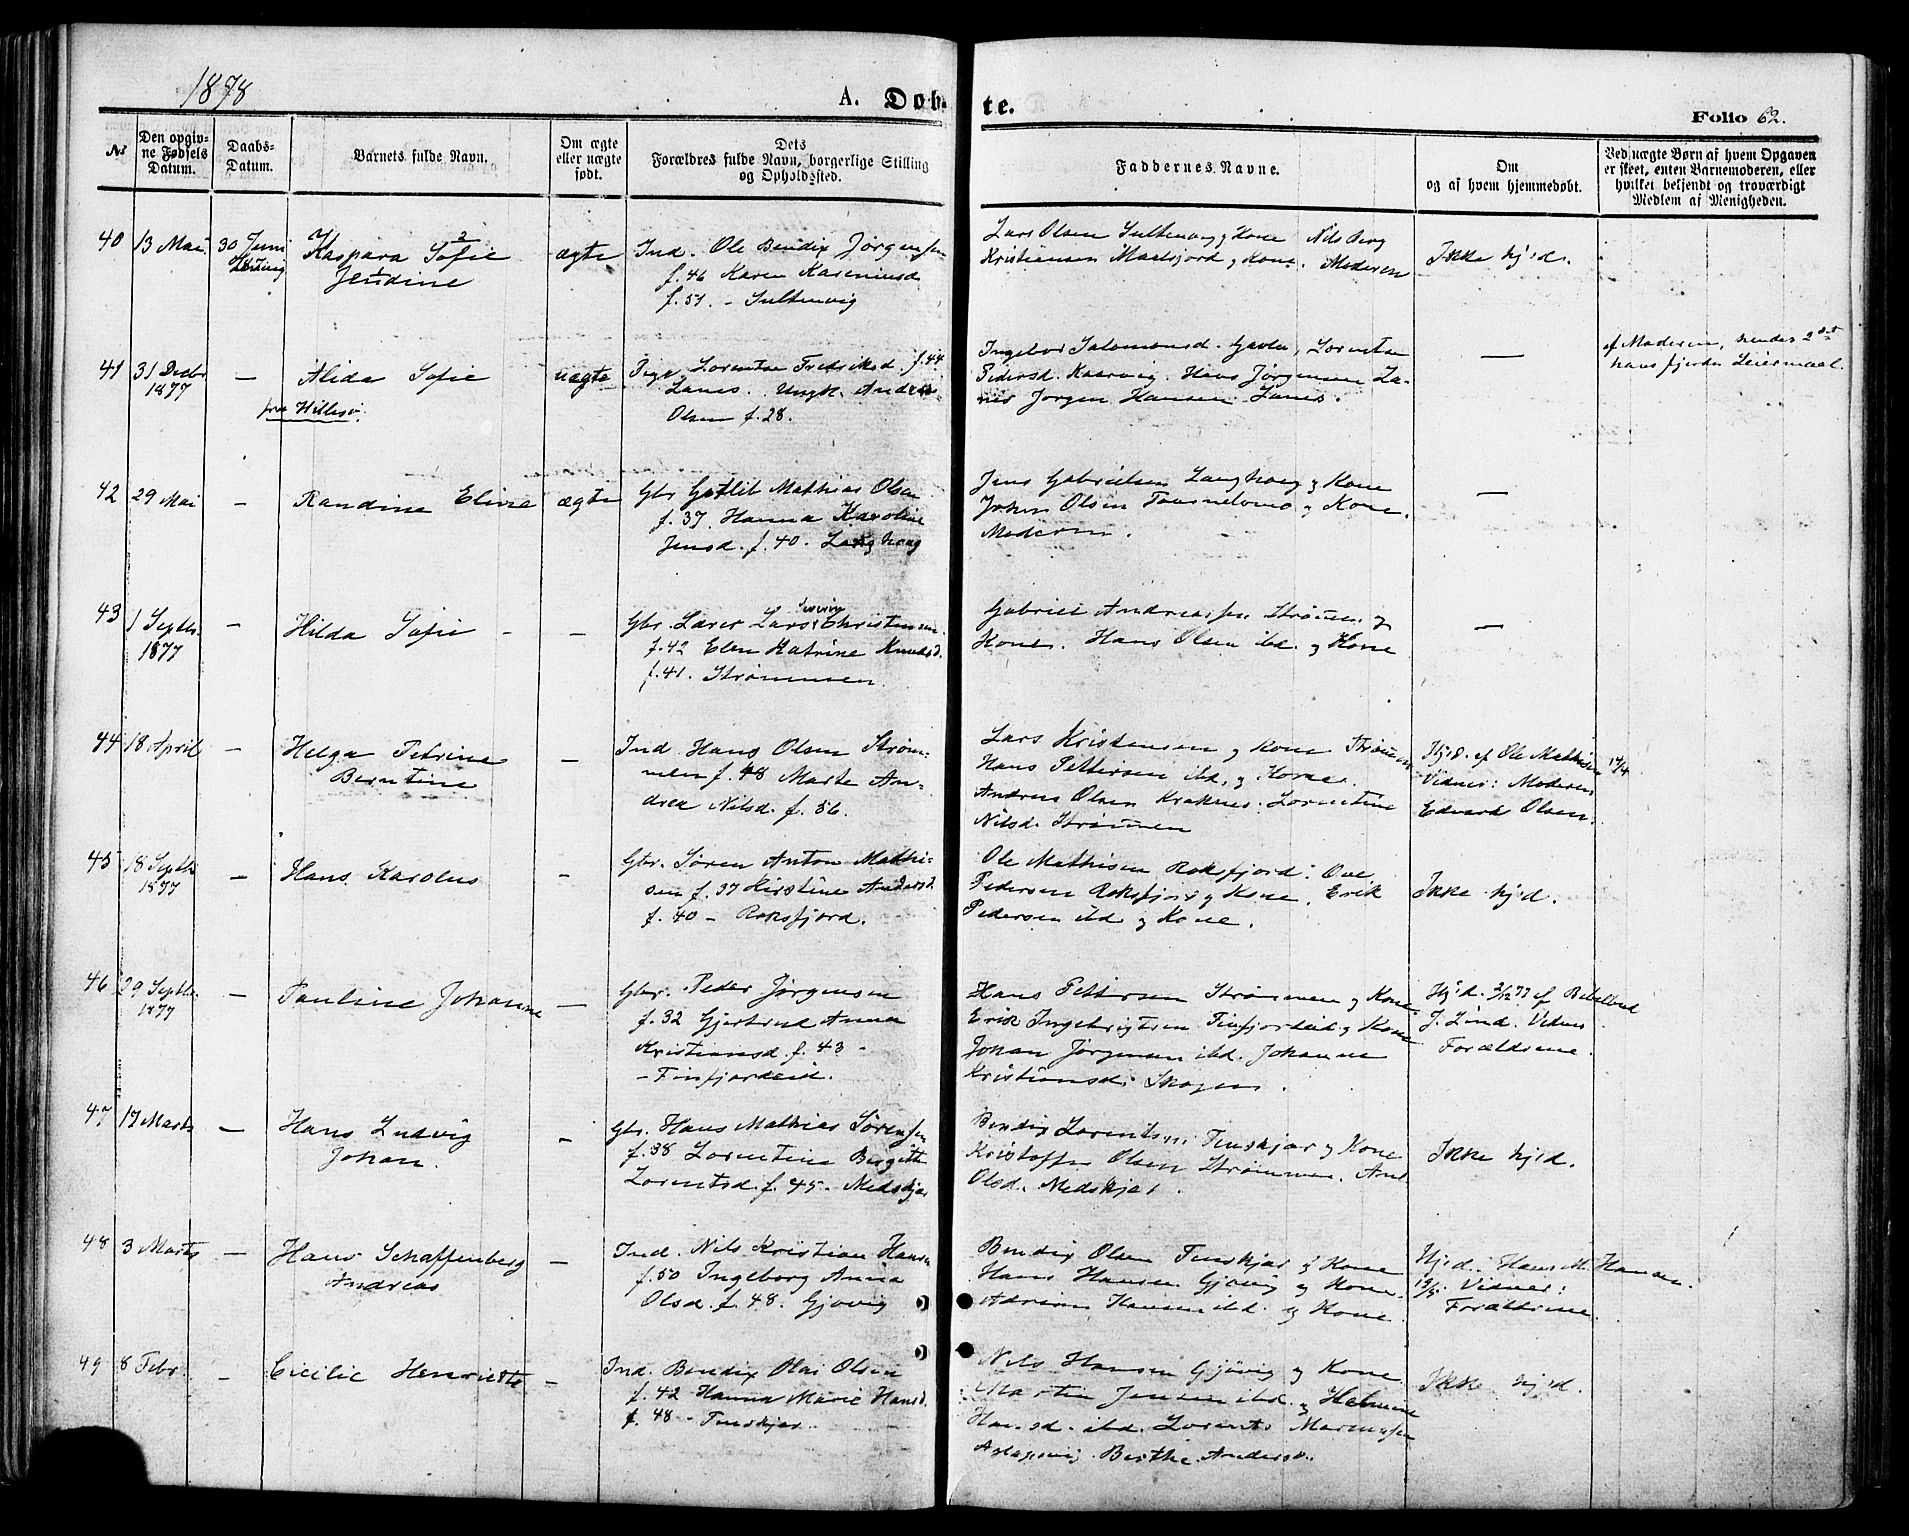 1878
A. Døbte.
Folio 62.
No
Den opgivne Fødsels Datum.
Daabs-Datum.
Barnets fulde Navn.
Om ægte eller uægte født.
Dets Forældres fulde Navn, borgerlige Stilling og Opholdssted.
Faddernes Navne.
Om og af hvem hjemmedøbt.
Ved uægte Børn af hvem Opgaven er skeet, enten Barnemoderen, eller hvilket bekjendt og troværdigt Medlem af Menigheden.
40 13 Mai 30 Juni
Kaspara Sofie
Jendine
ægte
Ind. Ole Bendix Jørgensen
f. 46 Karen Kareniusd
f. 51 - Sultenvig
Lars Olsen Sultenvig og Kone Nils Berg
Kristiansen Malsfjord og Kone. Moderen
Ikke hjed.
41 31 Decbr
1877
—
Alida Sofie
fra Hillesø.
uægte
Pige Lorentse Fredriksd. f. 44
Lanes. Ungk. Andreas
Olsen f. 28.
Ingebor Salomonsd. Lorentse
Pedersd. Kaarvig. Hans Jørgensen La-
nes Jørgen Hansen Lanes.
—
af Moderen, hendes 2det
hans fjerde Leiermaal.
42 29 Mai
—
Randine Eline
ægte
Gbr Gotlit Mathias Olsen
f. 37. Hanna Karoline
Jensd. f. 40. Langhaug
Jens Gabrielsen Langhaug og Kone
Johan Olsen og Kone.
Moderen.
—
43 1 Septbr.
1877
—
Hilda Sofie
—
Gbr. Lærer Lars Christensen
f. 42 Elen Katrine Knudsd.
f. 41. Strømmen
Gabriel Andreassen Strømen og
Kone. Hans Olsen ibd. og Kone
—
44 18 April
—
Helga Petrine
Berntine
—
Ind. Hans Olsen Strøm-
men f. 48 Marte An-
drea Nilsd. f. 56.
Lars Kristensen og Kone Strømen
Hans Pettersen ibd. og Kone.
Andreas Olsen Kraknes. Lorentine
Nilsd. Strømmen
Hjd. af Ole Mathisen
Vidner: Moderen
Edvard Olsen.
45 18 Septbr
1877
—
Hans Karolus
—
Gbr. Søren Anton Mathi-
sen f. 37 Kirstine Andersd
f. 40 - Roksfjord.
Ole Mathisen Roksfjord: Ove
Pedersen Roksfjord og Kone. Erik
Pedersen ibd og Kone.
Ikke hjd.
46 29 Septbr.
1877
—
Pauline Johanna
—
Gbr. Peder Jørgensen
f. 32 Gjertrud Anna
Kristiansd. f. 43 -
- Finfjordeid.
Hans Pettersen Strømmen og Kone
Erik Ingebrigtsen Finfjordeid og Kone
Johan Jørgensen ibd. Johanne
Kristiansd. Skogen.
Hjd. 2/12 77 af Bibelbud
J. Lind. Vidner
Forældrene.
47 17 Marts
—
Hans Ludvig
Johan.
—
Gbr. Hans Mathias Sørensen
f. 38 Lorentine Birgitte
Lorentsd. f. 45. Nedskjær
Bendix Lorentsen Finskjær og Kone
Kristoffer Olsen Strømmen. Ane
Olsd. Nedskjær.
Ikke hjd.
48 3 Marts
—
Hans Schaffenberg
Andreas
—
Ind. Nils Kristian Hansen
f. 50 Ingeborg Anna
Olsd. f. 48. Gjøvig
Bendix Olsen Finskjær og Kone
Hans Hansen Gjøvig og Kone.
Adrian Hansen ibd. og Kone
Hjd. Hans M. Hansen.
Vidner:
Forældrene
49 8 Febr.
—
Cicilie Henriette
—
Ind. Bendix Olai Olsen
f. 42 Hanna Marie Hansd.
f. 48 - Finskjær.
Nils Hansen Gjøvig og Kone
Marten Jensen ibd. og Helmine
Hansd. ibd. Lorents Mariussen
Aslagsvig. Berthe Andersd.
Ikke hjd.